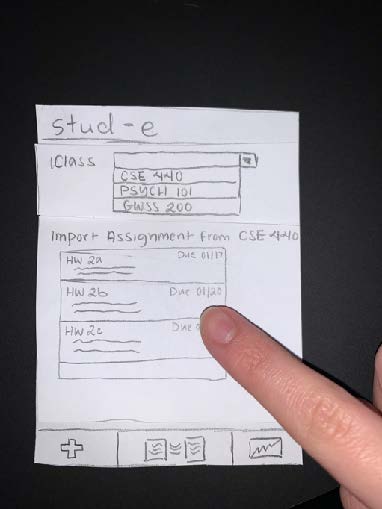 stud-e
Class
CSE 440
PSYCH 101
GWSS 200
Import Assignment from CSE 440
HW 2a Due 01/17
HW 2b Due 01/20
HW 2c Due